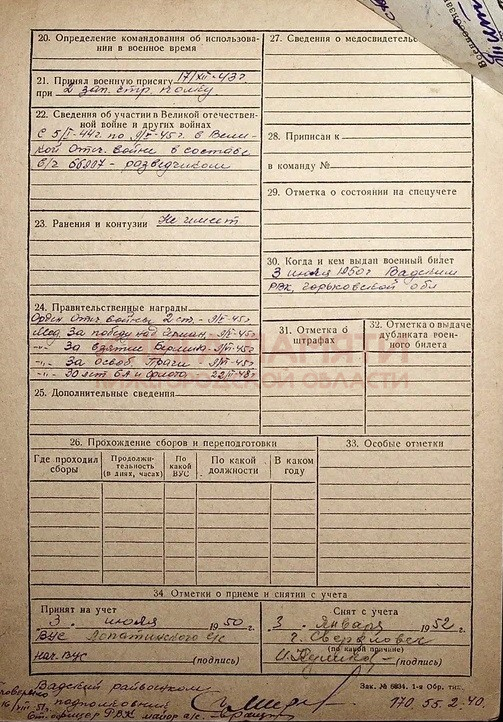 20. Определение командования об использова-
нии в военное время
21. Принял военную присягу 17/XII-43г.
при 2 зап. стр. полку
22. Сведения об участии в Великой отечествен-
ной войне и других войнах
С 5/I-44г. по 9/V-45г. в Вели-
кой Отеч. войне в составе
в/ч - разведчиком
23. Ранения и контузии Не имеет
24. Правительственные награды
Орден Отеч. войны 2 ст. - 9/V-45г
Мед. За победу над Герман. 9/V-45г
-"- За взятие Берлина 9/V-45г
-"- За освоб. Праги - 9/V-45г
-"- 30 лет СА и флота - 22/II-48г
25. Дополнительные сведения
26. Прохождение сборов и переподготовки
Где проходил сборы
Продолжи-
тельность
(в днях, часах)
По какой ВУС
По какой должности
В каком году
27. Сведения о медосвидетельс
28. Приписан к
в команду №
29. Отметка о состоянии на спецучете
30. Когда и кем выдан военный билет
3 июля 1950г Вадским
РВК, Горьковской обл
31. Отметка о штрафах
32. Отметка о выдаче
дубликата воен-
ного билета
ПАМЯТИ
НИЖЕГОРОДСКОЙ ОБЛАСТИ
33. Особые отметки
34. Отметки о приеме и снятии с учета
Принят на учет
3. июля 1950 г.
ВУС Лопатинского с/с
нач. ВУС (подпись)
Снят с учета
3 января 1952 г.
г. Свердловск
(по какой причине)
(подпись)
Вадский райвоенком
подполковник
Ст. офицер РВК майор а/с.
Зак. № 6834. 1-я Обр. тип.
170. 55. 2. 40.